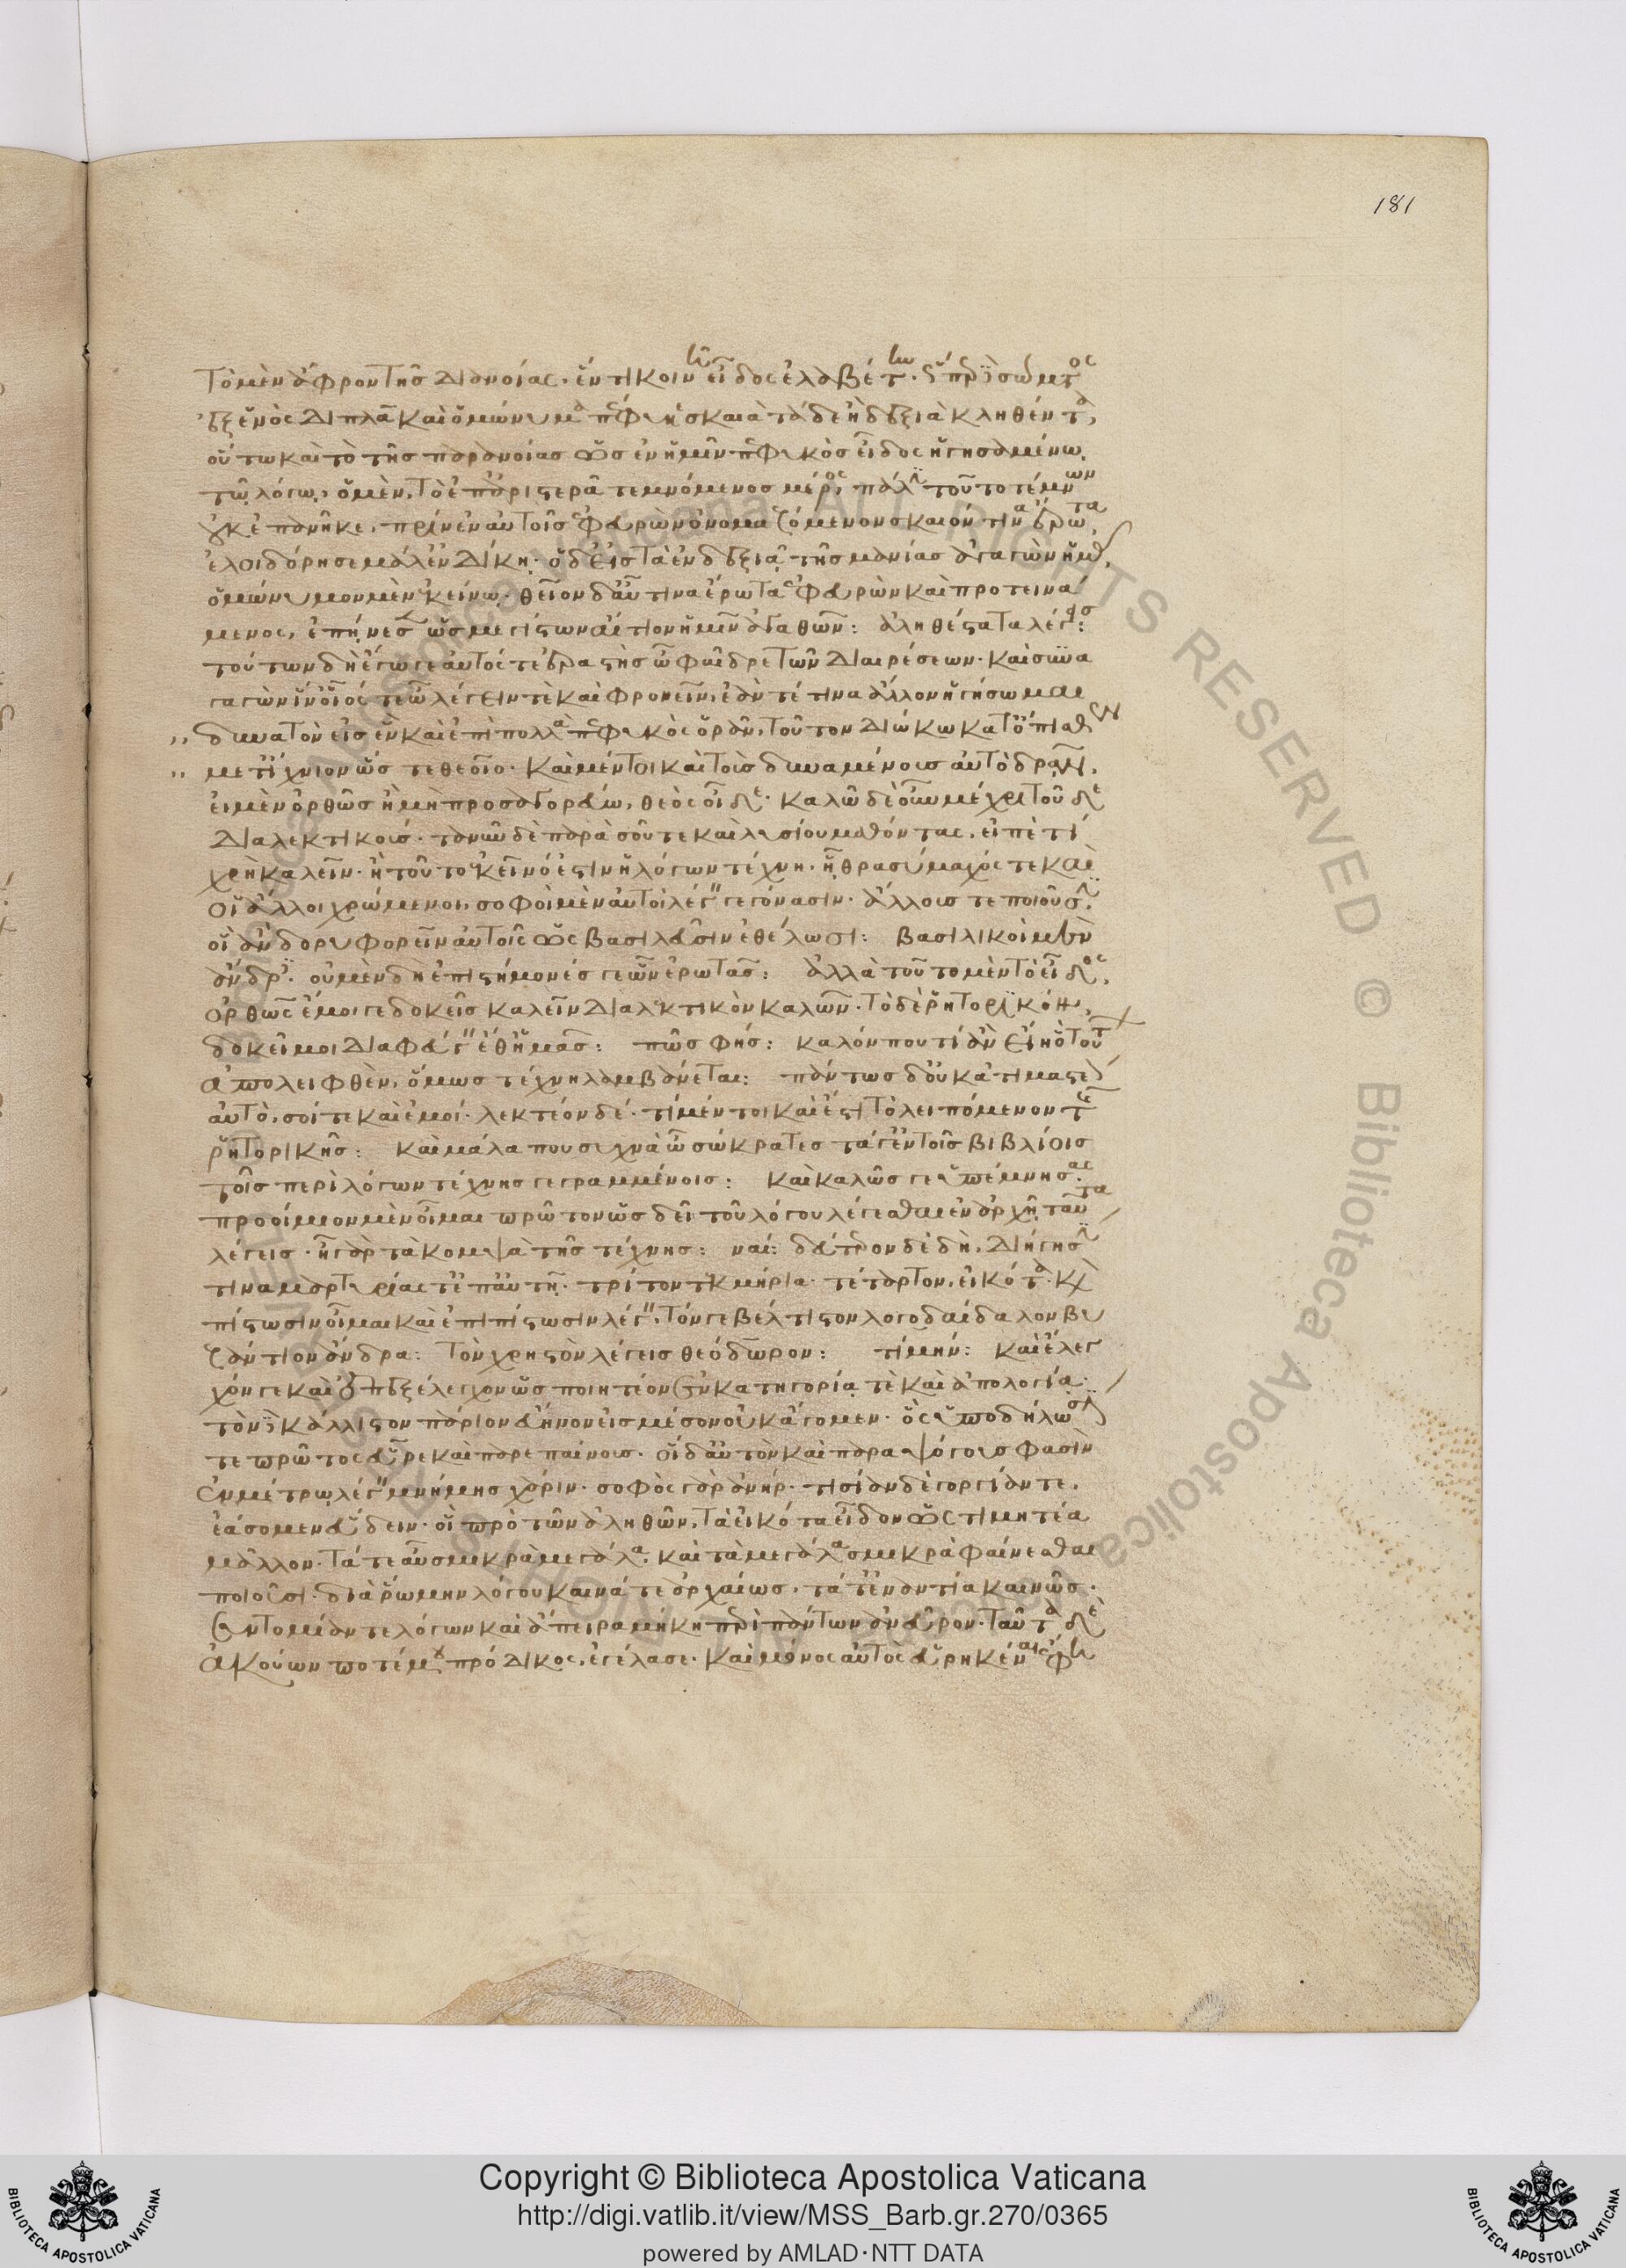 181
τὸ μὲν ἄφρον τῆς διανοίας, ἕν τι κοινῇ εἶδος ἐλαβέτην. ὥσπερ δὲ σώματος
ἐξ ἑνὸς διπλᾶ καὶ ὁμώνυμα πέφυκε σκαιὰ τὰ δὲ ἢ δεξιὰ κληθέντα,
οὕτω καὶ τὸ τῆς παρανοίας ὡς ἓν ἡμῖν πεφυκὸς εἶδος ἡγησαμένω
τὼ λόγω, ὁ μὲν, τὸ ἐπ' ἀριστερᾶ τεμνόμενος μέρος, πάλιν τοῦτο τέμνων
οὐκ ἐπανῆκε, πρὶν ἐν αὐτοῖς ἐφευρὼν ὀνομαζόμενον σκαιόν τινα ἔρωτα
ἐλοιδόρησε μάλ' ἐν δίκῃ. ὁ δ' εἰς τὰ ἐν δεξιᾷ τῆς μανίας ἀγαγὼν ἡμᾶς,
ὁμώνυμον μὲν ἐκείνῳ, θεῖον δ' αὖ τινα ἔρωτα ἐφευρὼν καὶ προτεινά
μενος, ἐπῄνεσεν ὡς μεγίστων αἴτιον ἡμῖν ἀγαθῶν: ἀληθέστατα λέγεις:
τούτων δὴ ἔγωγε αὐτός τε ἐραστὴς ὦ φαῖδρε τῶν διαιρέσεων. καὶ συνα
γωγῶν ἵν' οἷός τε ὦ λέγειν τὲ καὶ φρονεῖν, ἐάν τέ τινα ἄλλον ἡγήσωμαι
δυνατὸν εἰς ἓν καὶ ἐπὶ πολλὰ πεφυκὸς ὁρᾶν, τοῦτον διώκω κατόπισθεν
μετ' ἴχνιον ὥς τε θεοῖο. καὶ μέντοι καὶ τοῖς δυναμένοις αὐτὸ δρᾶν,
εἰ μὲν ὀρθῶς ἢ μὴ προσαγορεύω, θεὸς οἶδε. καλῶ δὲ οὖν μέχρι τοῦδε
διαλεκτικούς. τανῦν δὲ παρὰ σοῦ τε καὶ λυσίου μαθόντας, εἰπὲ τί
χρὴ καλεῖν. ἢ τοῦτο ἐκεῖνό ἐστιν ἡ λόγων τέχνη. ᾗ θρασύμαχός τε καὶ
οἱ ἄλλοι χρώμενοι, σοφοὶ μὲν αὐτοὶ λέγειν γεγόνασιν. ἄλλους τε ποιοῦσιν.
οἳ ἂν δορυφορεῖν αὐτοῖς ὡς βασιλεῦσιν ἐθέλωσι: βασιλικοὶ μὲν
ἄνδρες. οὐ μὲν δὴ ἐπιστήμονές γε ὧν ἐρωτᾶς: ἀλλὰ τοῦτο μὲν τὸ εἶδος,
ὀρθῶς ἔμοιγε δοκεῖς καλεῖν διαλεκτικὸν καλῶν. τὸ δὲ ῥητορικόν,
δοκεῖ μοι διαφεύγειν ἔθ' ἡμᾶς: πῶς φῄς: καλόν που τί ἂν εἴη ὃ τούτων
ἀπολειφθὲν, ὅμως τέχνῃ λαμβάνεται: πάντως δ' οὐκ ἀτιμαστέον
αὐτὸ, σοί τε καὶ ἐμοί. λεκτέον δέ. τί μέντοι καὶ ἔστι τὸ λειπόμενον τῆς
ῥητορικῆς: καὶ μάλα που συχνὰ ὦ σώκρατες τά γ' ἐν τοῖς βιβλίοις
τοῖς περὶ λόγων τέχνης γεγραμμένοις: καὶ καλῶς γε ὑπέμνησας.
προοίμιον μὲν οἶμαι πρῶτον ὡς δεῖ τοῦ λόγου λέγεσθαι ἐν ἀρχῇ. ταῦτα
λέγεις. ἦ γὰρ τὰ κομψὰ τῆς τέχνης: ναί: δεύτερον δὲ δὴ, διήγησίν
τινα μαρτυρίας τ' ἐπ' αὐτῇ. τρίτον τεκμήρια. τέταρτον, εἰκότα. καὶ
πίστωσιν οἶμαι καὶ ἐπιπίστωσιν λέγειν, τόν γε βέλτιστον λογοδαίδαλον βυ
ζάντιον ἄνδρα: τὸν χρηστὸν λέγεις θεόδωρον: τί μήν: καὶ ἔλεγ
χόν γε καὶ ἐπεξέλεγχον ὡς ποιητέον ἐν κατηγορίᾳ τὲ καὶ ἀπολογίᾳ.
τὸν δὲ κάλλιστον πάριον εὔηνον εἰς μέσον οὐκ ἄγομεν. ὃς ὑποδήλωσίν
τε πρῶτος εὗρε καὶ παρεπαίνους. οἱ δ' αὐτὸν καὶ παραψόγους φασὶν
ἐν μέτρῳ λέγειν μνήμης χάριν. σοφὸς γὰρ ἀνήρ. τισίαν δὲ γοργίαν τε,
ἐάσομεν εὕδειν. οἳ πρὸ τῶν ἀληθῶν, τὰ εἰκότα εἶδον ὡς τιμητέα
μᾶλλον. τά τε αὖ σμικρὰ μεγάλα, καὶ τὰ μεγάλα σμικρὰ φαίνεσθαι
ποιοῦσι. διὰ ῥώμην λόγου καινά τε ἀρχαίως, τά τ' ἐναντία καινῶς.
συντομίαν τε λόγων καὶ ἄπειρα μήκη περὶ πάντων ἀνεῦρον. ταῦτα δὲ
ἀκούων ποτέ μου πρόδικος, ἐγέλασε. καὶ μόνος αὐτὸς εὑρηκέναι ἔφη
Copyright © Biblioteca Apostolica Vaticana
http://digi.vatlib.it/view/MSS_Barb.gr.270/0365
powered by AMLAD·NTT DATA